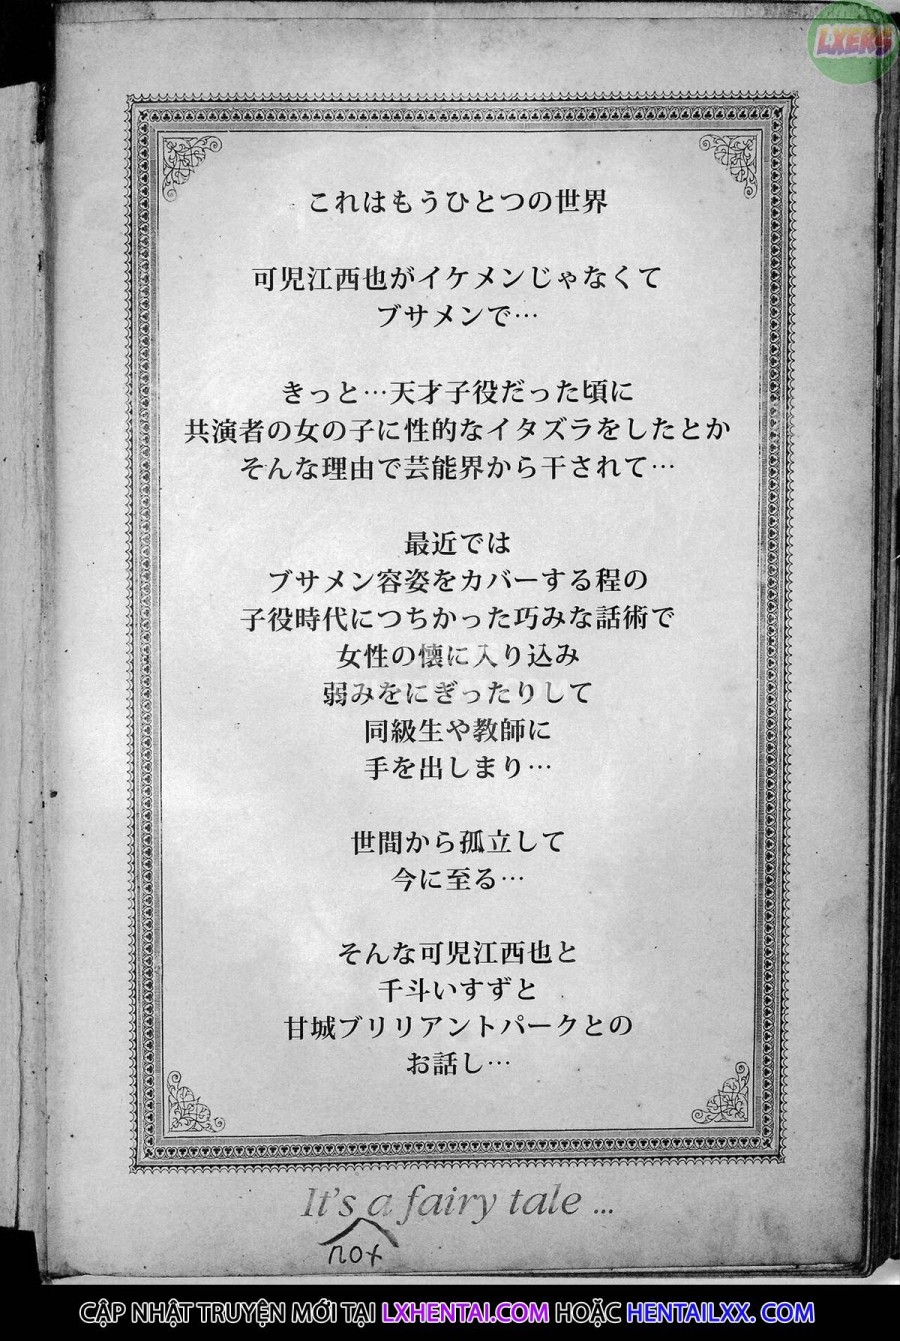 LXERS
これはもうひとつの世界
可児江西也がイケメンじゃなくて
ブサメンで…
きっと…天才子役だった頃に
共演者の女の子に性的なイタズラをしたとか
そんな理由で芸能界から干されて…
最近では
ブサメン容姿をカバーする程の
子役時代につちかった巧みな話術で
女性の懐に入り込み
弱みをにぎったりして
同級生や教師に
手を出しまり…
世間から孤立して
今に至る…
そんな可児江西也と
千斗いすずと
甘城ブリリアントパークとの
お話し…
It's a fairy tale ...
not
CẬP NHẬT TRUYỆN MỚI TẠI LXHENTAI.COM HOẶC HENTAILXX. COM